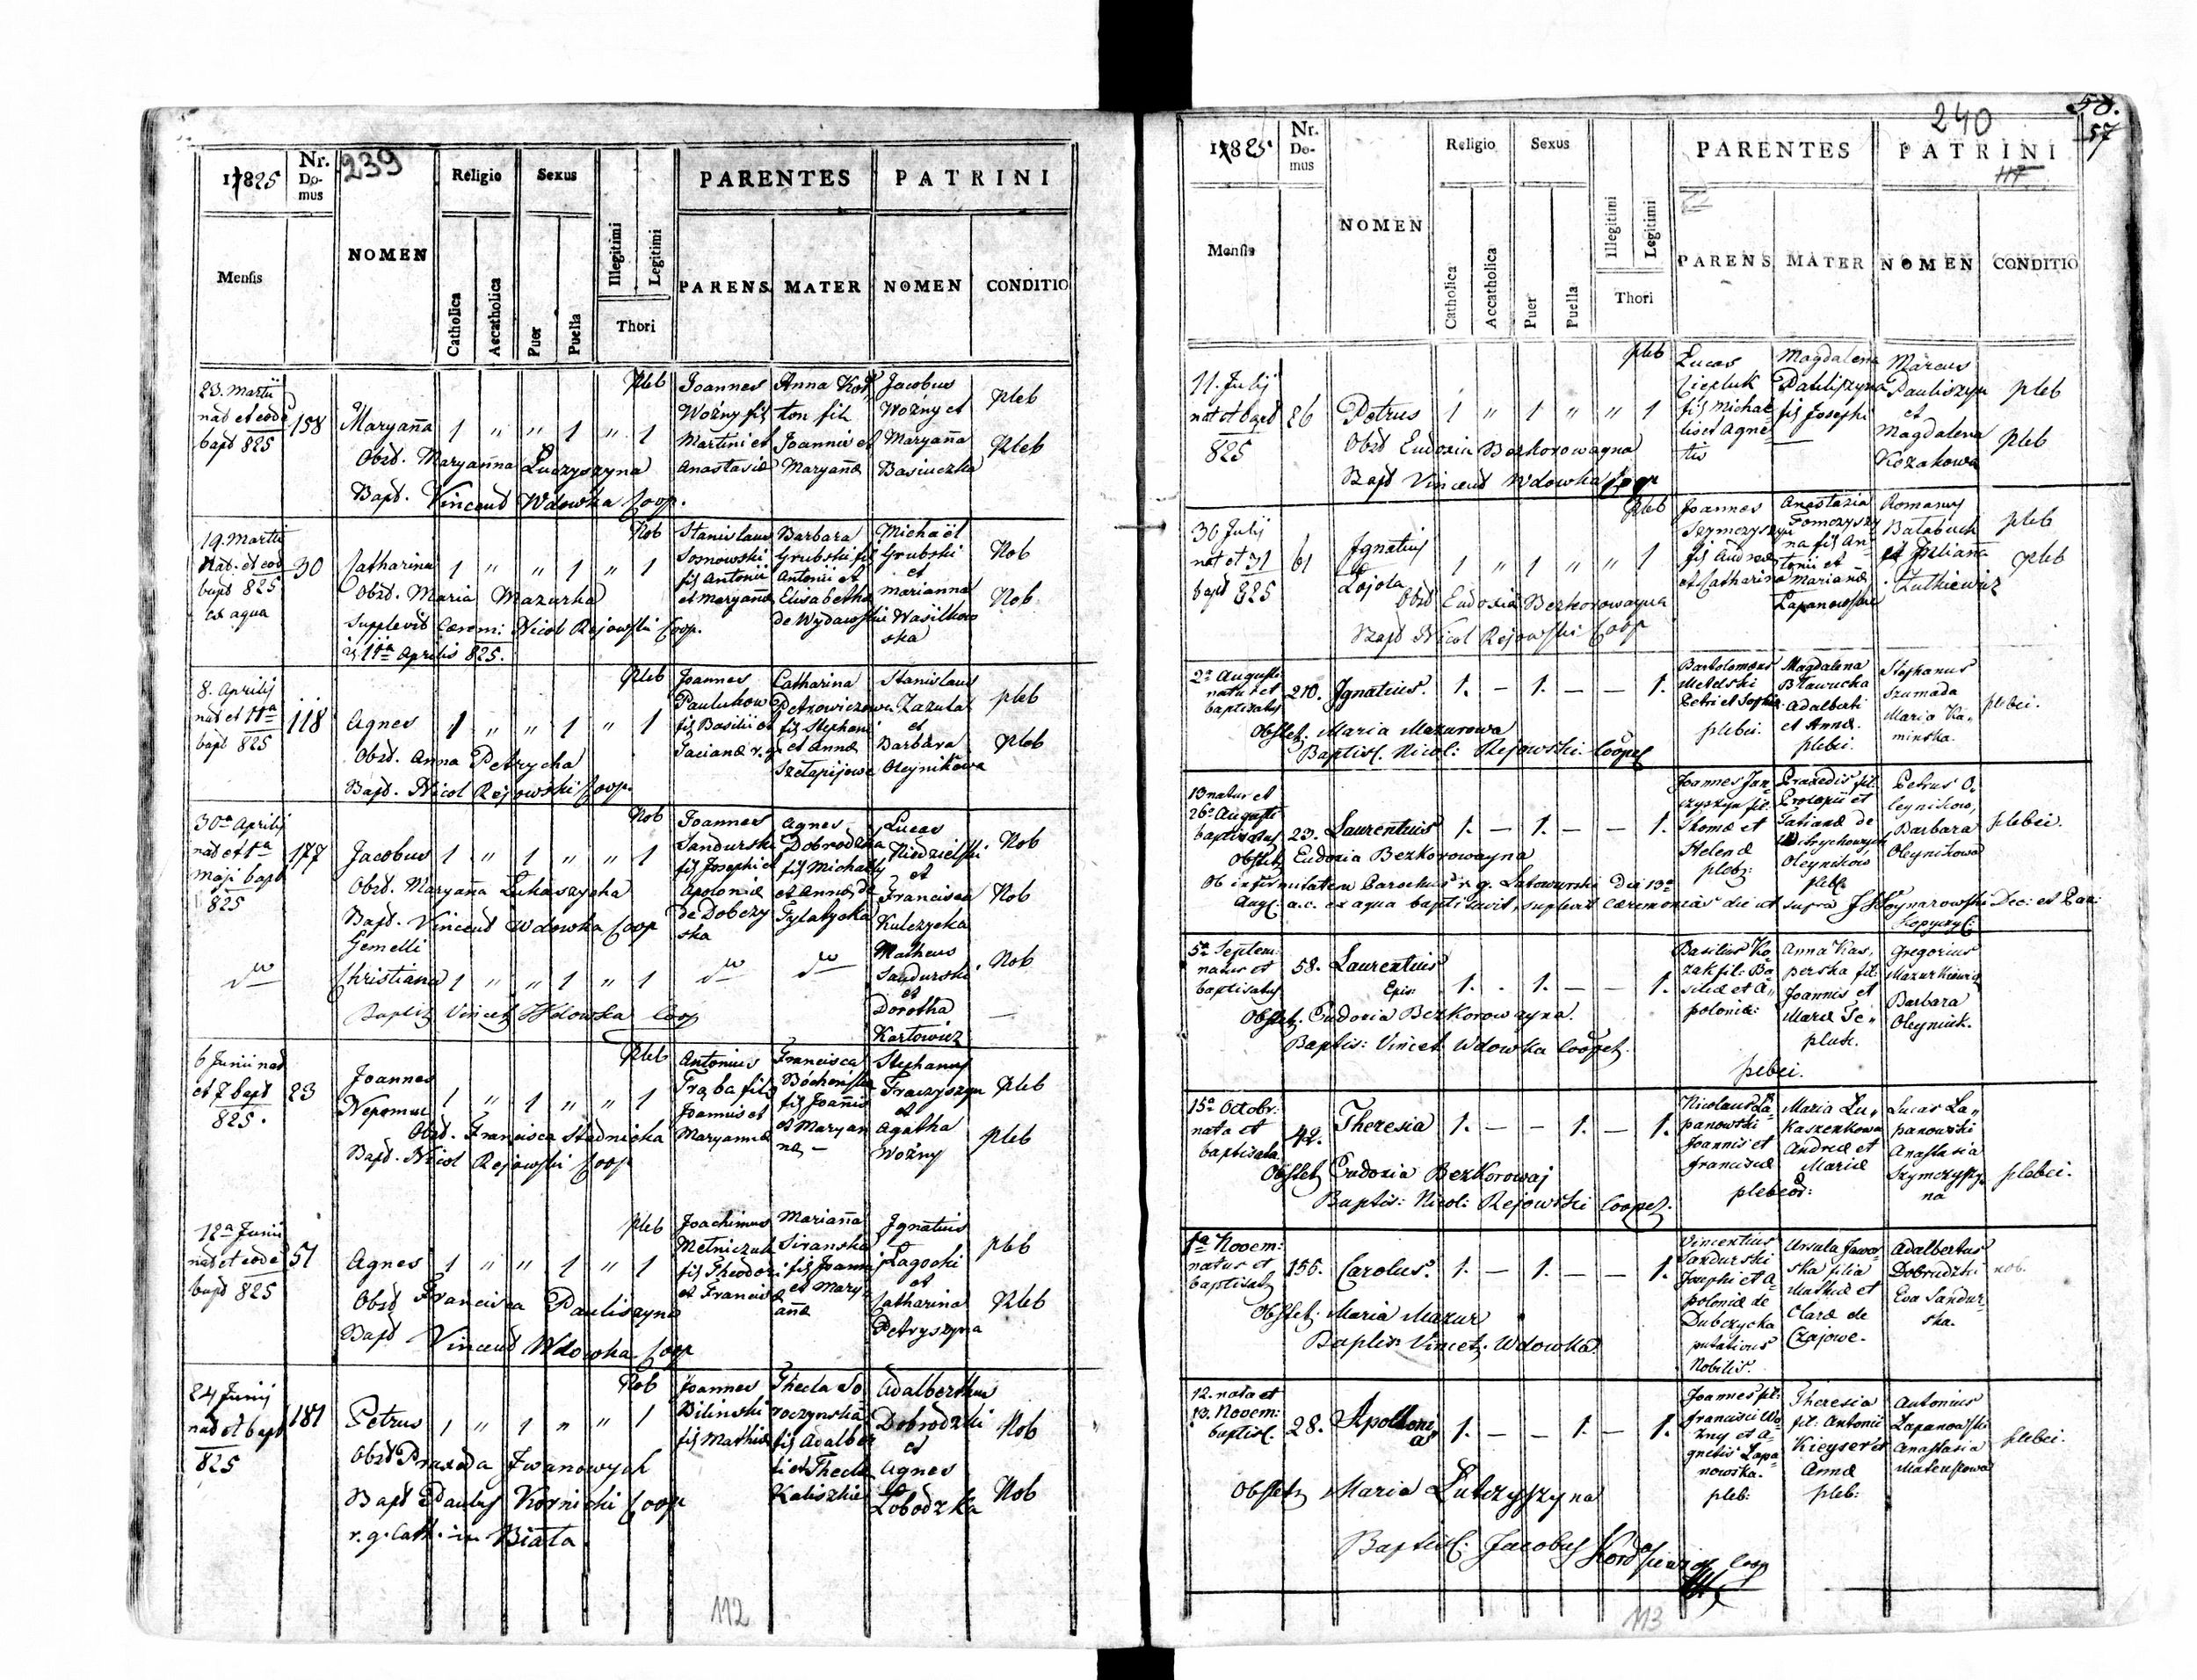 239
17825
Nr.
Do-
mus
NOMEN
Religio
Sexus
Illegitimi
Legitimi
PARENTES
PATRINI
Mensis
Catholica
Accatholica
Puer
Puella
Thori
PARENS
MATER
NOMEN
CONDITIO
23. Martii
nat et eod
bapt 825
158
Maryaña
1 " " 1 " 1
Pleb
Joannes
Woźny fil
Martini et
Anastasiæ
Anna Koł
ton fil
Joannis et
Maryanæ
Jacobus
Woźny et
Maryaña
Basiuczka
pleb
Pleb
Obst. Maryanna Łuczyszyna
Bapt. Vincent Wdowka Coop.
19. Martii
nat. et eod
bapt 825
ex aqua
30
Catharina
1 " " 1 " 1
Nob
Stanislaus
Sosnowski
fil Antonii
et Maryañæ
Barbara
Grubski fil
Antonii et
Elisabetha
de Wydawskie
Michaël
Grubski
et
Marianna
Wasilkow
ska
Nob
Nob
Obst. Maria Mazurka
Supplevit Cærem: Nicol Rejowski Coop.
11ª Aprilis 825.
8. Aprilij
nat et 11ª
bapt 825
118
Agnes
1 " " 1 " 1
Pleb
Joannes
Paulukow
fil Basilii et
Tacianæ r. g.
Catharina
Petrowiczowa
fil Stephani
et Annæ
Szełapijowe
Stanislaus
Zazula
et
Barbara
Oleynikowa
pleb
Pleb
Obst. Anna Petrycha
Bapt. Nicol Rejowski Coop.
30ª Aprilij
nat et 1ª
Maji bapt
825
177
Jacobus
1 " 1 " " 1
Nob
Joannes
Sandurski
fil Josephi et
Apoloniæ
de Dobczy
ska
Agnes
Dobrodzka
fil Michaelis
et Annæ de
Lucas
Niedzielski
et
Francisca
Kulczycka
Nob
Nob
Obst. Maryaña Lukaszycha
Bapt. Vincent Wdowka Coop
Gemelli
dto
Christiana
1 " " 1 " 1
dto
dto
Matheus
Sandurski
et
Dorotha
Karłowicz
Nob
—
Baptiz Vincet Wdowka Coop
6 Junii nat
et 7 bapt
825.
23
Joannes
Nepomuc
1 " 1 " " 1
Pleb
Antonius
Trąba fil
Joannis et
Maryannæ
Francisca
Bocheńska
fil Joannis
et Maryan
næ —
Stephanus
Fraczyszyn
et
Agatha
Woźny
Pleb
pleb
Obst. Francisca Stadnicka
Bapt. Nicol Rejowski Coop
12ª Junii
nat et eode
bapt 825
51
Agnes
1 " " 1 " 1
Pleb
Joachimus
Melniczuk
fil Theodori
et Francis
Marianna
Siranska
fil Joanni
et Mary
añæ
Ignatius
Łagocki
et
Catharina
Petryszyna
pleb
Pleb
Obst Francisca Pauliszyna
Bapt Vincent Wdowka Coop
24 Junij
nat et bapt
825
181
Petrus
1 " 1 " " 1
Nob
Joannes
Bilinski
fil Mathiæ
Thecla So
roczynska
fil Adalber
ti et Theclæ
Kaliszkie
Adalberthus
Dobrodzki
et
Agnes
Łobodzka
Nob
Nob
Obst Praxeda Iwanowych
Bapt Paulus Kornicki Coop
r. g. Cath. in Biała
112
240
58.
57
1782 5.
Nr.
Do-
mus
NOMEN
Religio
Sexus
Illegitimi
Legitimi
PARENTES
PATRINI
Mensis
Catholica
Accatholica
Puer
Puella
Thori
PARENS
MATER
NOMEN
CONDITIO
11. Julij
nat et bapt
825
26
Petrus
1 " 1 " " 1
pleb
Lucas
Ciepluk
fil Michae
lis et Agne
tis
Magdalena
Pauliszyna
fil Josephi
Marcus
Pauliszyn
et
Magdalena
Kozakowa
pleb
pleb
Obst Eudoxia Bezkorowayna
Bapt Vincent Wdowka Coop
30 Julij
nat et 31
bapt 825
61
Ignatius
Lojola
1 " 1 " " 1
Pleb
Joannes
Szymczyszyn
fil Andreæ
et Catharinæ
Anastazia
Tomczyszy
na fil An-
tonii et
Marianæ
Łapanowskie
Romanus
Bałabuch
et Julianna
Lutkiewicz
pleb
pleb
Obst Eudoxia Bezkorowayna
Bapt Nicol Rejowski Coop
2ª Augusti
natus et
baptizatus
210.
Ignatius.
1. — 1. — — 1.
Bartolomæus
Metelski
Petri et Sophiæ
plebei.
Magdalena
Bławucka
Adalberti
et Annæ.
plebei.
Stephanus
Szumada
Maria Ka„
minska.
plebei.
Obstet. Maria Mazurowa
Baptis. Nicol: Rejowski Coopes
13 natus et
26ª Augusti
baptizatus
23.
Laurentius
1. — 1. — — 1.
Joannes Jan„
czyszyn fil:
Thomæ et
Helenæ
pleb:
Praxedis fil:
Procopii et
Tatianæ de
Oleyników
pleb.
Petrus O„
leynikow,
Barbara
Oleynikowa
plebei.
Obstet Eudoxia Bezkorowayna
Ob infirmitatem Parochus r. g. Latowurski Die 13ª
Aug. a.c. ex aqua baptisavit, suplevit cæremonias die ut supra Woynarowski Dec: et Par:
Kopyczy:
5ª Septem:
natus et
baptisatus
58.
Laurentius
Epis:
1. . 1. — — 1.
Basilius Ko„
zak fil: Ba„
siliæ et A„
poloniæ:
Anna Kas„
perska fil:
Joannis et
Mariæ Te„
pluk.
plebei.
Gregorius
Mazurkiewicz
Barbara
Oleyniuk.
Obstet. Eudoxia Bezkorowayna.
Baptis: Vincet. Wdowka Coopet.
15ª Octobr:
nata et
baptisata
42.
Theresia
1. — — 1. — 1.
Nicolaus Ła„
panowski
Joannis et
Franciscæ
plebeor:
Maria Lu„
kaszenkowa
Andreæ et
Mariæ
Lucas La„
panowski
Anastasia
Szymczyszy„
na
plebei.
Obstet Eudoxia Bezkorowaj
Baptis: Nicol: Rejowski Coopet.
1ª Novem:
natus et
baptisatus
156.
Carolus.
1. — 1. — — 1.
Vincentius
Sandurski
Josephi et A„
poloniæ de
Dubczycka
putativus
Nobilis.
Ursula Jawor„
ska filia
Mathiæ et
Claræ de
Czajowe.
Adalbertus
Dobrudzki
Eva Sandur„
ska.
nob.
Obstet. Maria Mazur
Baptis: Vincet. Wdowka
12. nata et
13. Novem:
baptis.
28.
Apolloni
a
1. — — 1. — 1.
Joannes fil:
Francisci Wo„
zny et A„
gnetis Łapa„
nowska.
pleb:
Theresia
fil. Antonii
Kieyser et
Annæ
pleb:
Antonius
Łapanowski
Anastasia
Mateuszowa
plebei.
Obstet Maria Łutczyszyna
Baptis: Jacobus Coop
113